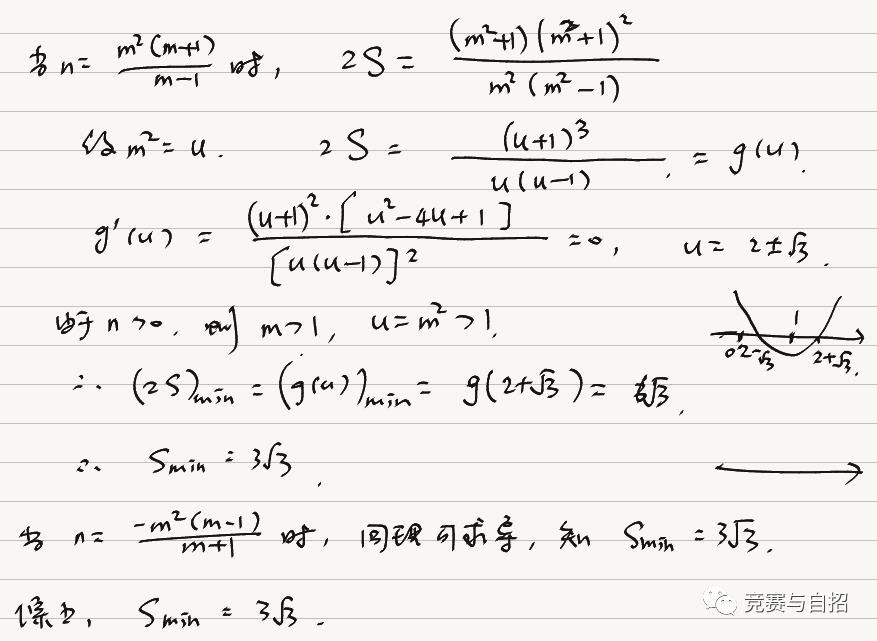 当 n = \frac{m^2(m+1)}{m-1} 时, 2S = \frac{(m^2+1)(m^2+1)^2}{m^2(m^2-1)}
设 m^2 = u. 2S = \frac{(u+1)^3}{u(u-1)} = g(u).
g'(u) = \frac{(u+1)^2 \cdot [u^2-4u+1]}{[u(u-1)]^2} = 0, u = 2±√3.
由于 n>0, 则 m>1, u=m^2>1.
0 2-√3 1 2+√3
∴ (2S)_{min} = (g(u))_{min} = g(2+√3) = 6√3.
∴ S_{min} = 3√3.
当 n = \frac{-m^2(m-1)}{m+1} 时, 同理可求导, 知 S_{min} = 3√3.
综上, S_{min} = 3√3.
竞赛与自招